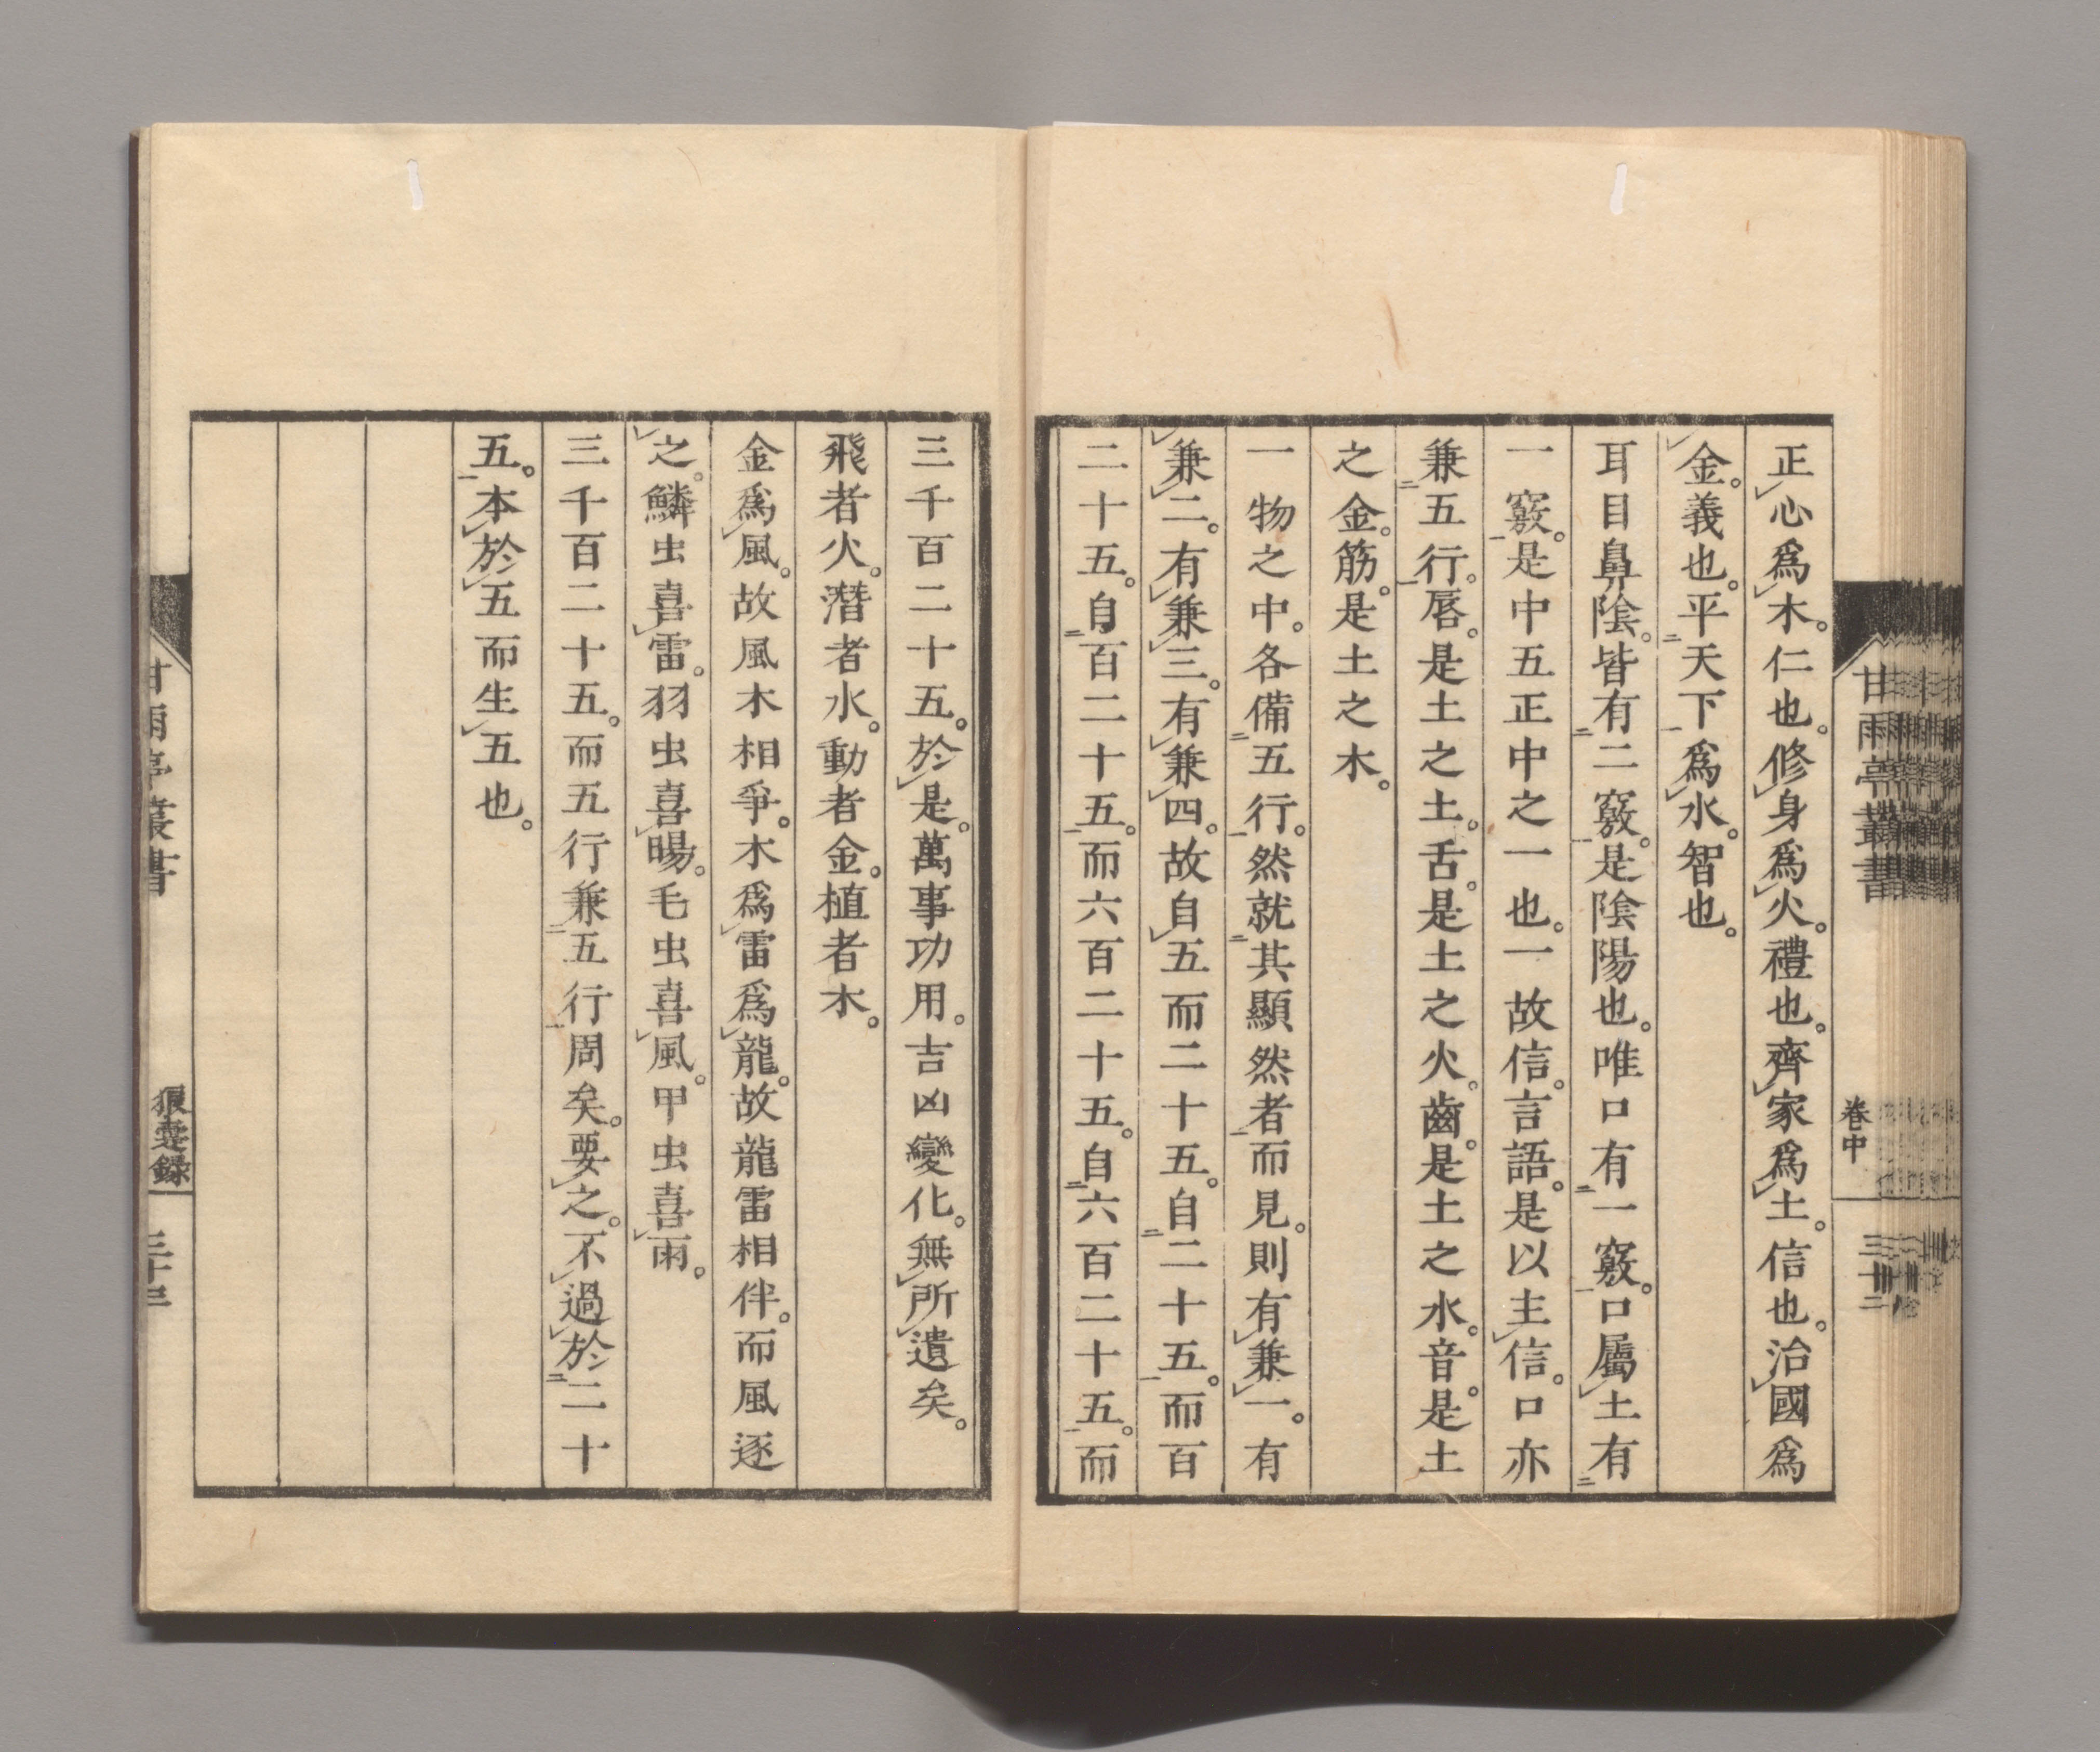 正心爲木。仁也。修身爲火。禮也。齊家爲土。信也。治國爲
金。義也。平天下爲水。智也。
耳目鼻陰。皆有二竅。是陰陽也。唯口有一竅。口屬土有
一竅。是中五正中之一也。一故信。言語。是以主信。口亦
兼五行。唇。是土之土。舌。是土之火。齒。是土之水。音。是土
之金。筋。是土之木。
一物之中。各備五行。然就其顯然者而見。則有兼一。有
兼二。有兼三。有兼四。故自五而二十五。自二十五。而百
二十五。自百二十五。而六百二十五。自六百二十五。而
三千百二十五。於是。萬事功用。吉凶變化。無所遺矣。
飛者火。潛者水。動者金。植者木。
金爲風。故風木相爭。木爲雷爲龍。故龍雷相伴。而風逐
之。鱗虫喜雷。羽虫喜暘。毛虫喜風。甲虫喜雨。
三千百二十五。而五行兼五行周矣。要之。不過於二十
五。本於五而生五也。
甘雨亭叢書
卷中
三十二
甘雨亭叢書
狼疐錄